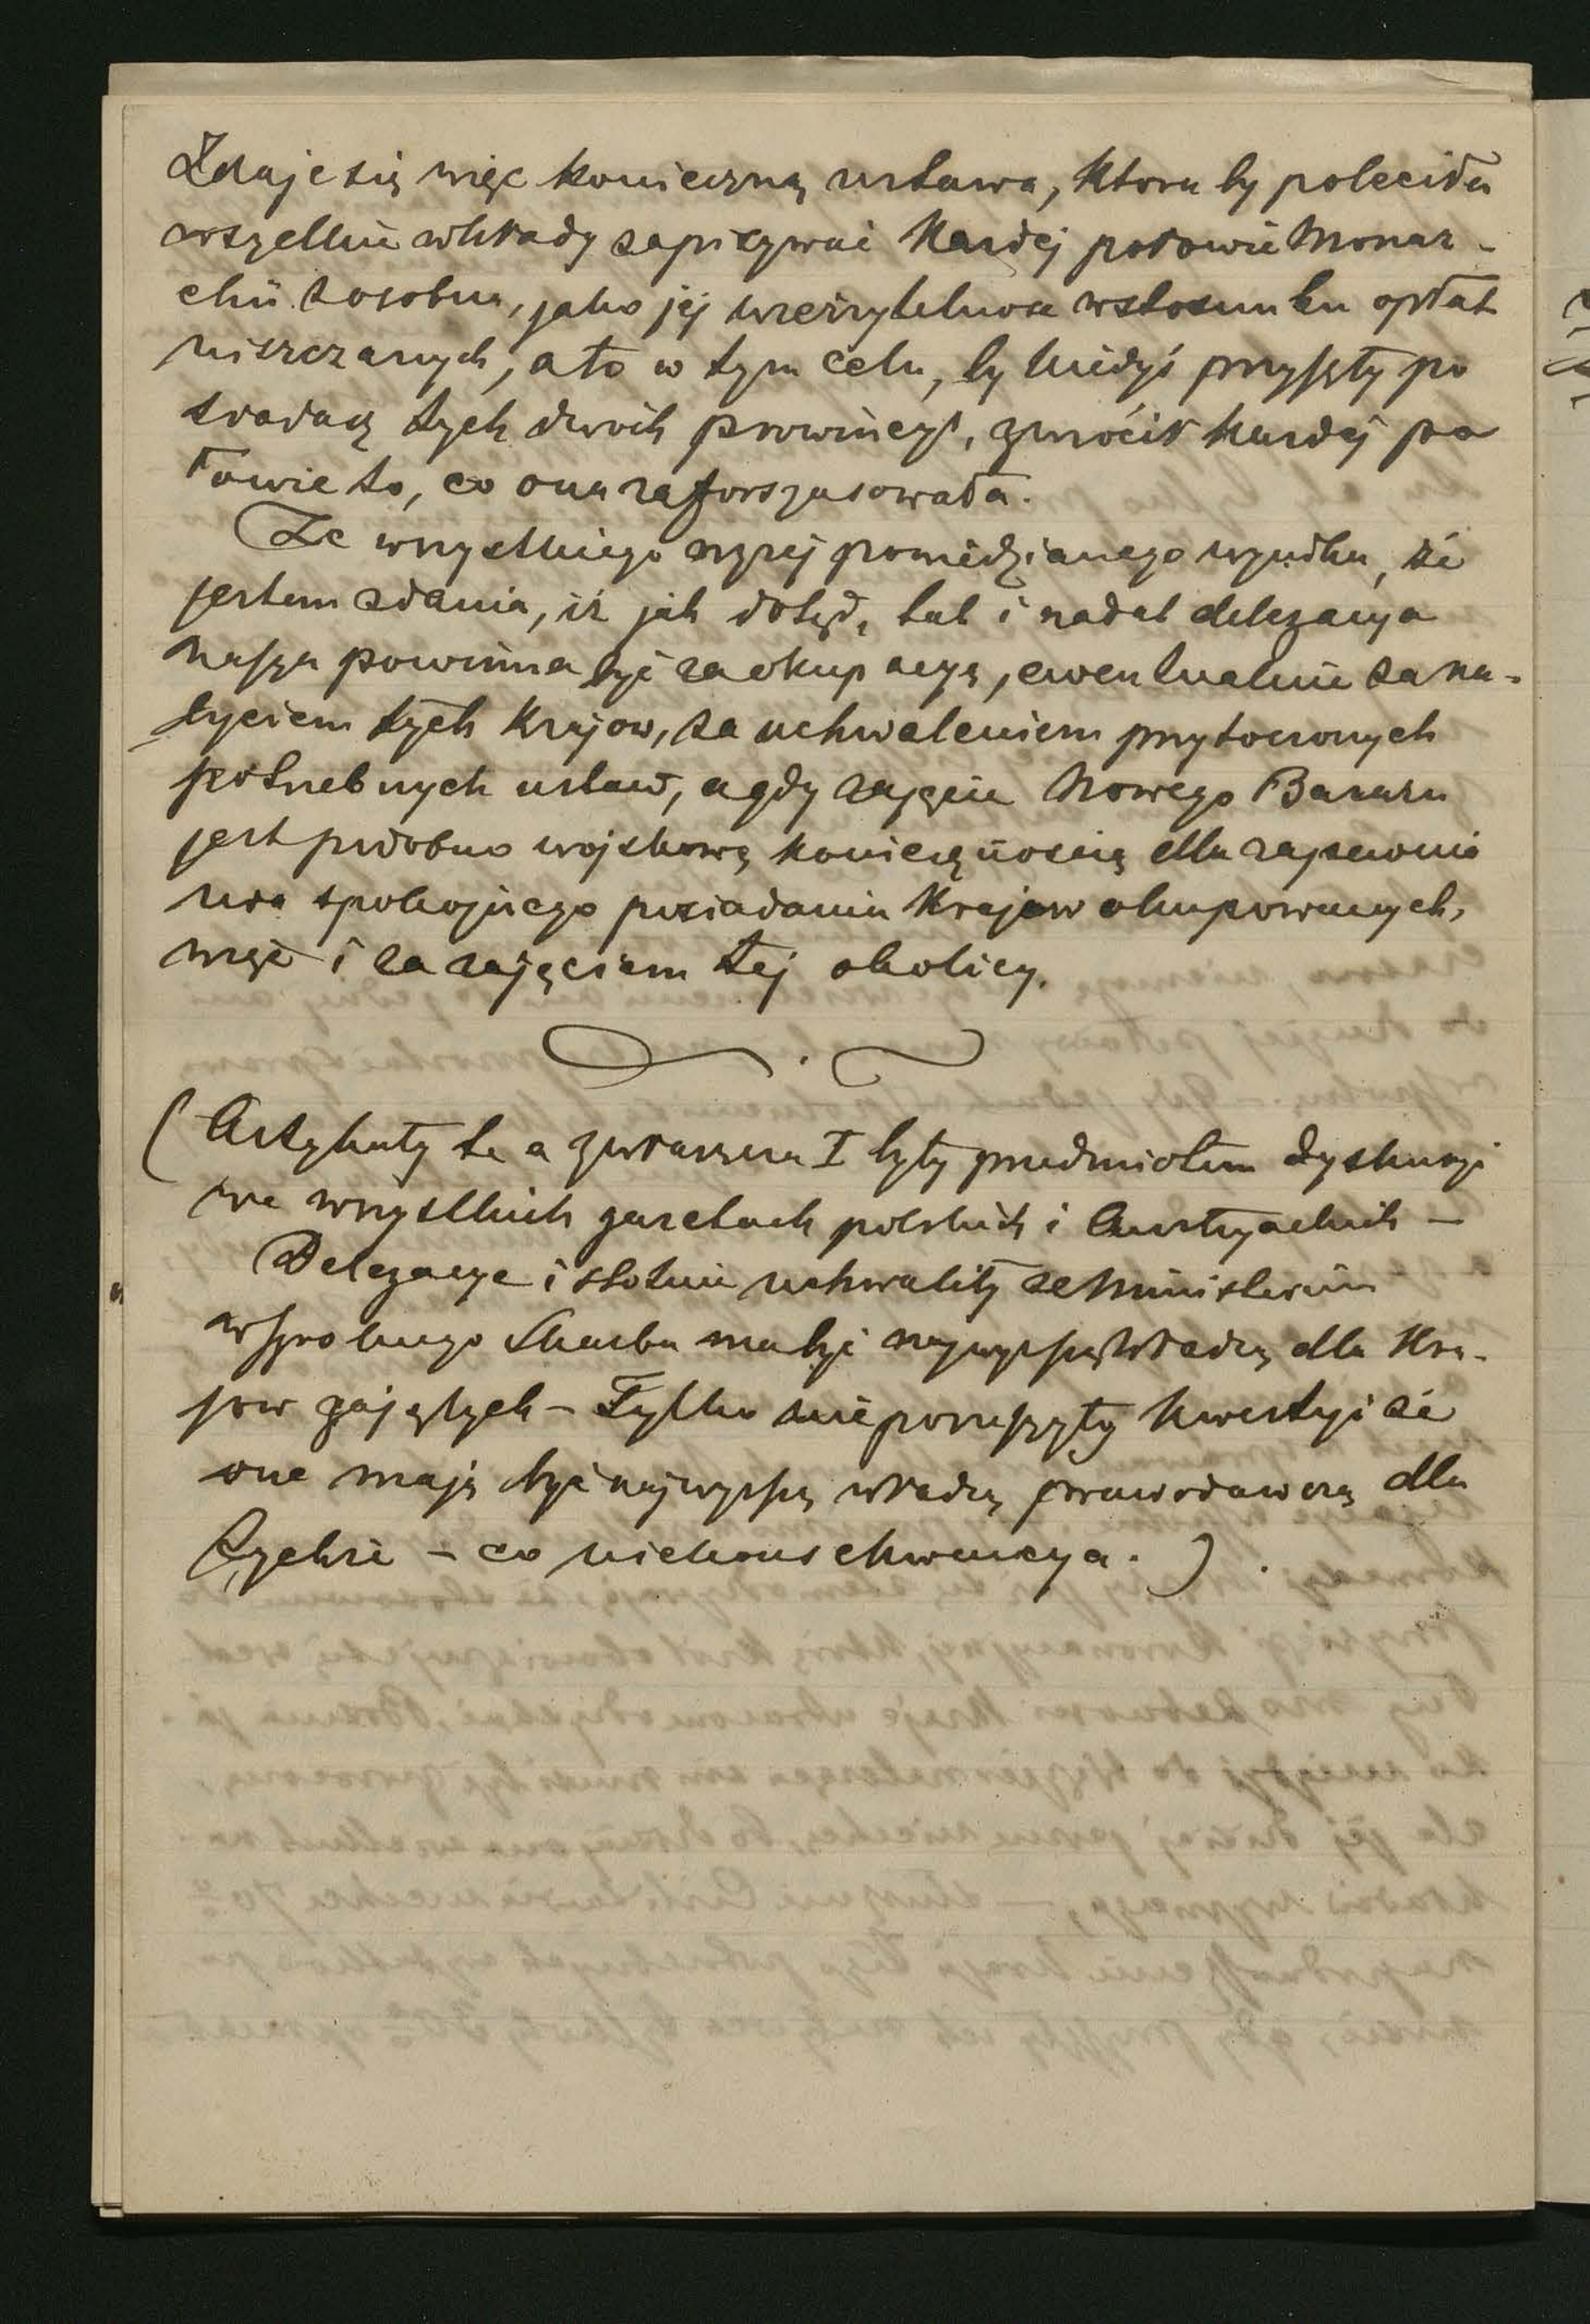 Zdaje się więc konieczną ustawa, ktora by poleciła
wszelkie wkłady zapisywać Każdej połowie Monar-
chii z osobna, jako jej wierzytelnosc w stosunku opłat
uiszczanych, a to w tym celu, by kiedyś przyszły po
siadacz tych dwóch prowincyi, zwrócił każdej po
łowie to, co ona zaforszusowała.
Ze wszystkiego wyżej powiedzianego wynika, że
jestem zdania, iż jak dotąd, tak i nadal delegacya
nasza powinna być za okupacyą, ewentualnie za na-
byciem tych Krajow, za uchwaleniem przytoczonych
potrzebnych ustaw, a gdy zajęcie Nowego Bazaru
jest podobno wojskową koniecznością dla zapewnie
nia spokojnego posiadania Krajow okupowanych,
więc i za zajęciem tej okolicy.
(Artykuły te a zwłaszcza I były przedmiotem dyskusyi
we wszystkich gazetach polskich i Austryackich –
Delegacye istotnie uchwaliły że Ministerium
wspolnego Skarbu ma być najwyższą Władzą dla Kra-
jow zajętych – Tylko nie poruszyły kwestyi że
one mają być najwyższą władzą prawodawczą dla
tychże – co niekonsekwencya.).